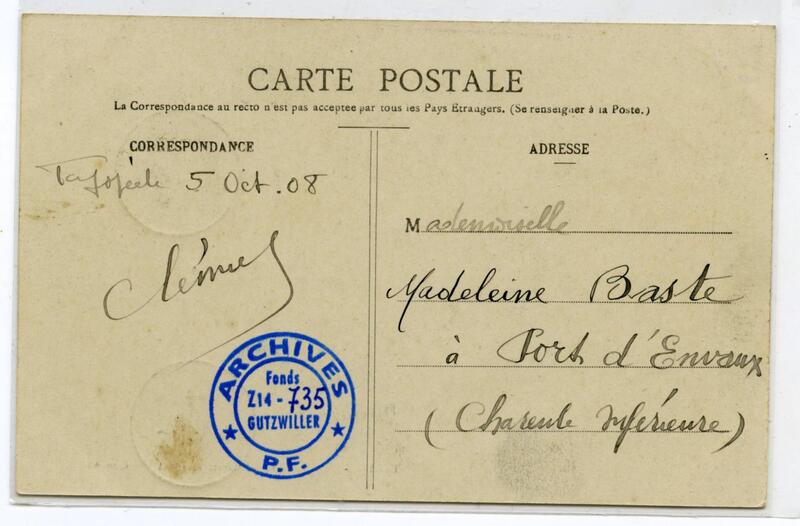 CARTE POSTALE
La Correspondance au recto n'est pas acceptee par tous les Pays Etrangers. (Se renseigner à la Poste.)
CORRESPONDANCE
5 Oct. 08
ADRESSE
Mademoiselle
Madeleine Baste
à Port d'Envaux
(Charente Inférieure)
ARCHIVES
Fonds
Z14-735
GUTZWILLER
P.F.